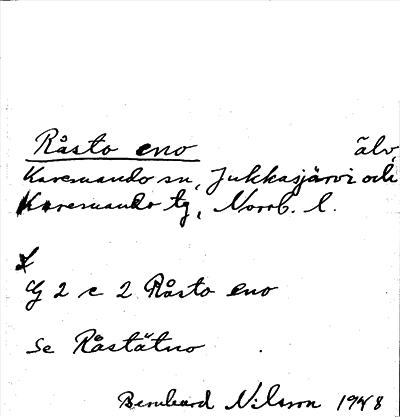 Råsto eno älv,
Karesuando sn, Jukkasjärvi och
Karesuando tg, Norrb. l.
2 c 2 Råsto eno
Se Råstätno
Bernhard Nilsson 1948